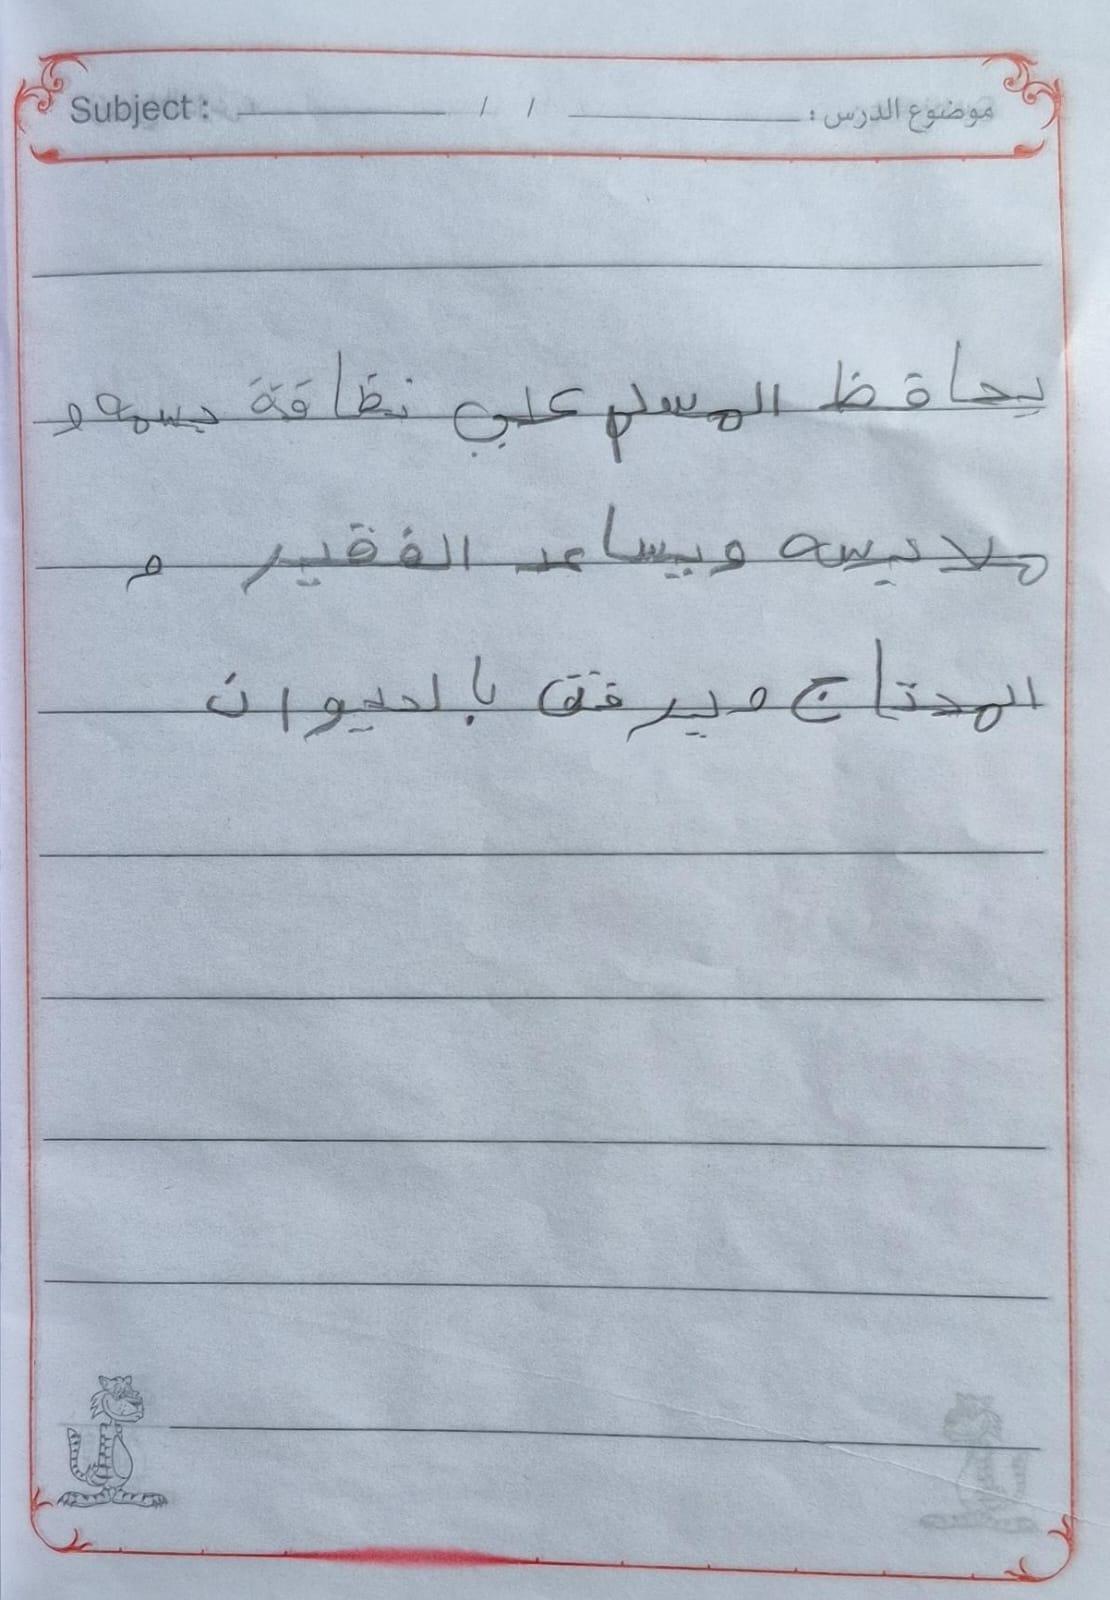 Subject : / / موضوع الدرس :
يحاقظ المسلم علي نظاقة جسمه و
ملابسه ويساعد الفقير و
المحتاج ويرفق بالحيوان